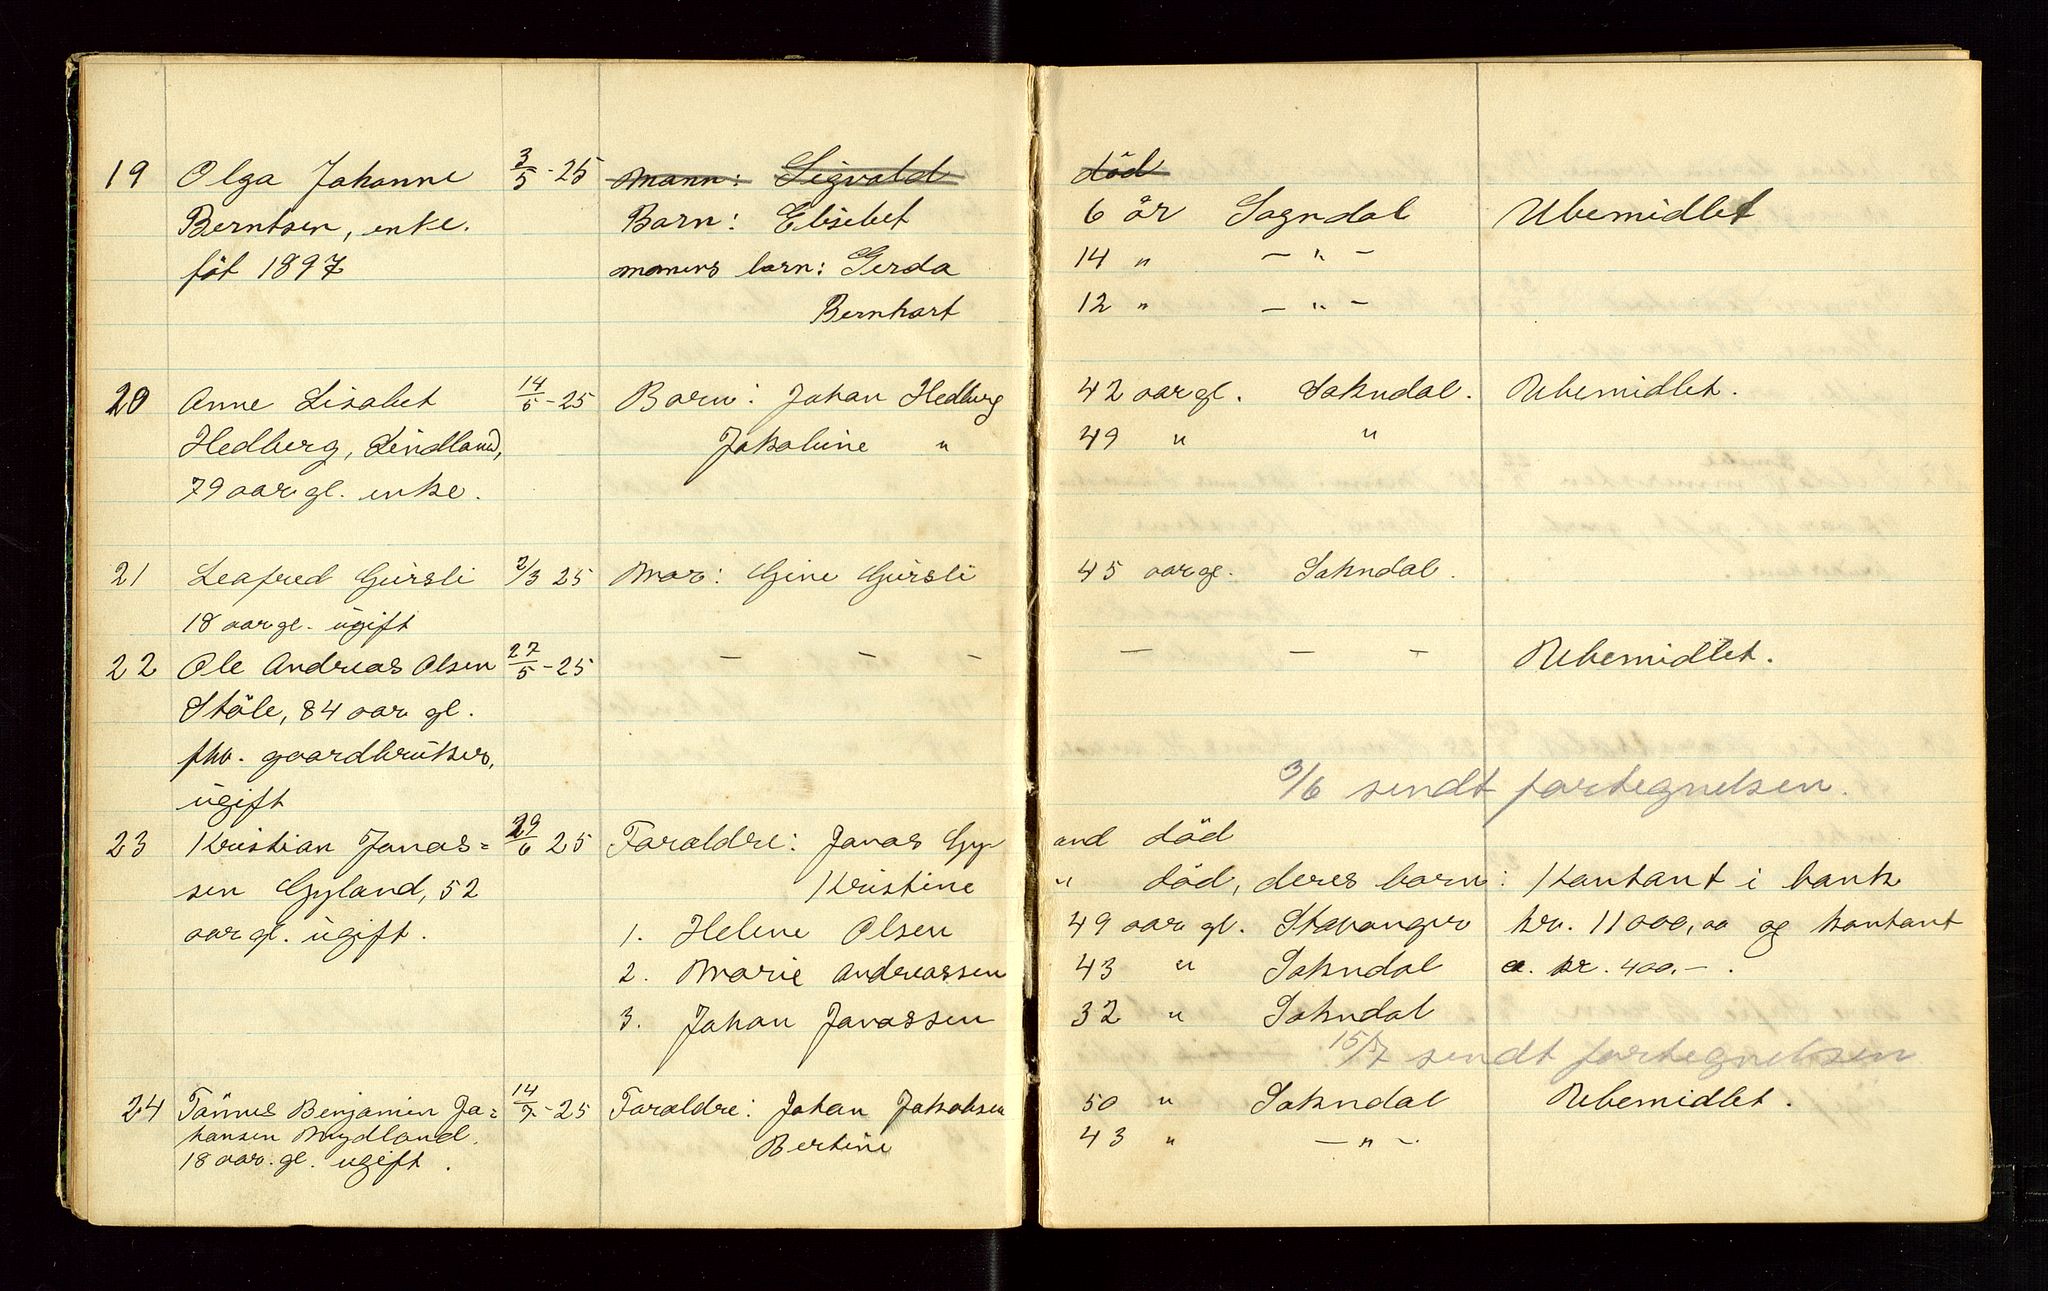 19 Olga Johanne 3/5 - 25 Mann: Sigvald død
Berntsen, enke. Barn: Elisebet 6 år Sogndal Ubemidlet
føt 1897 manens barn: Gerda 14 " - " -
Bernhart 12 " - " -
20 Anne Lisabet 14/5 - 25 Barn: Johan Hedberg 42 aar gl. Sokndal. Ubemidlet.
Hedberg, Lindland, Jakobine " 49 " "
79 aar gl. enke.
21 Leafred Gursli 2/3 25 Mor: Gine Gursli 45 aar gl. Sokndal.
18 aar gl. ugift
22 Ole Andreas Olsen 27/5 - 25 - - - - - - Ubemidlet.
Støle, 84 aar gl.
fhv. gaardbruker,
3/6 sendt fortegnelsen.
ugift
23 Kristian Jonas= 29/6 25 Foraldre: Jonas Gyland død
sen Gyland, 52 Kristine " død, deres barn: Kontant i bank
aar gl. ugift. 1. Helene Olsen 49 aar gl. Stavanger kr. 11000,00 og kontant
2. Marie Andreassen 43 " Sokndal a. kr. 400.-.
3. Johan Jonassen 32 " Sokndal
15/7 sendt fortegnelsen
24 Tønnes Benjamin Jo= 14/7 - 25 Foraldre: Johan Jakobsen 50 " Sokndal Ubemidlet.
hansen Mydland. Bertine 43 " - " -.
18 aar. gl. ugift.